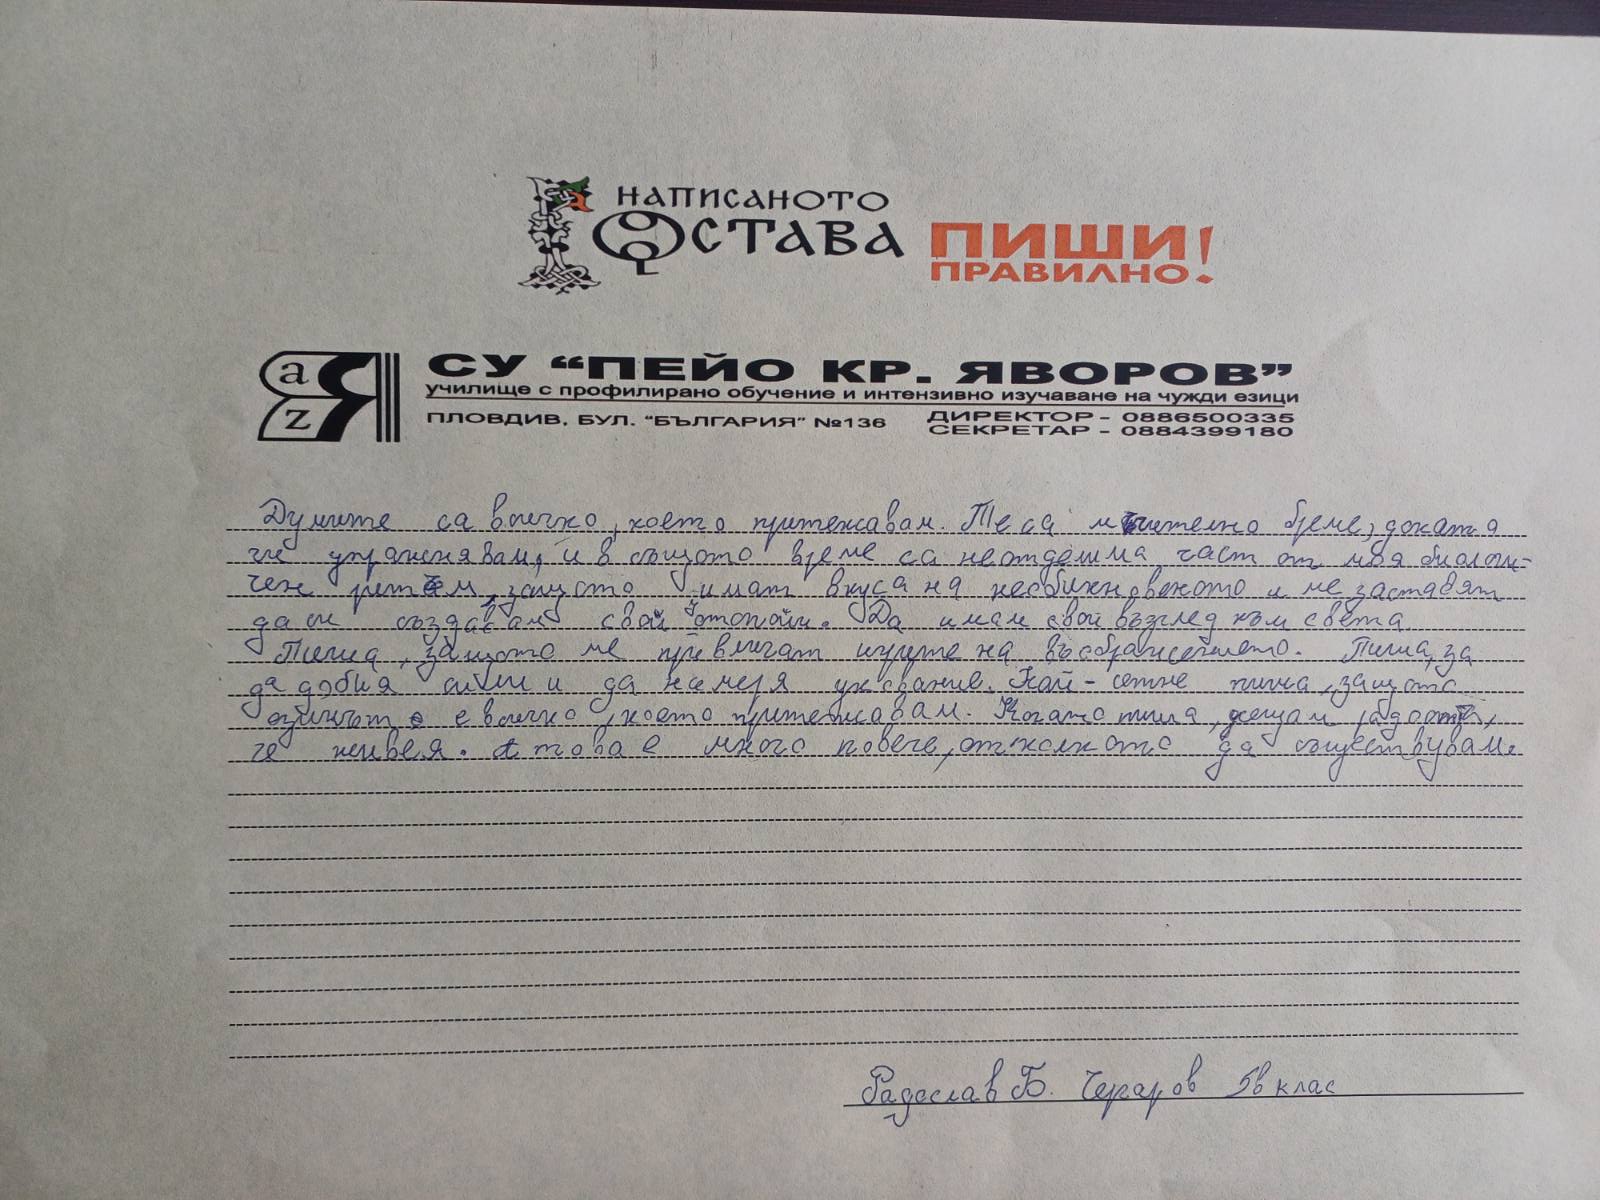 НАПИСАНОТО
ОСТАВА
ПИШИ!
ПРАВИЛНО!
a
z
Я
СУ “ПЕЙО КР. ЯВОРОВ”
училище с профилирано обучение и интензивно изучаване на чужди езици
ПЛОВДИВ, БУЛ. “БЪЛГАРИЯ” №136 ДИРЕКТОР - 0886500335
СЕКРЕТАР - 0884399180
Думите са всичко, което притежавам. Те са мъчително бреме, докато
ги упражнявам, и в същото време са неотделима част от моя биологи-
чен ритъм, защото имат вкуса на необикновеното и ме заставят
да си създавам свой утопии. Да имам свой възглед към света
Пиша, защото ме привличат на въображението. Пиша, за
да добия сили и да намеря упование. Най-сетне пиша, защото
езикът е всичко, което притежавам. Когато пиша, усещам радостта,
че живея. А това е много повече, отколкото да съществувам.
Радослав Б. 5в клас